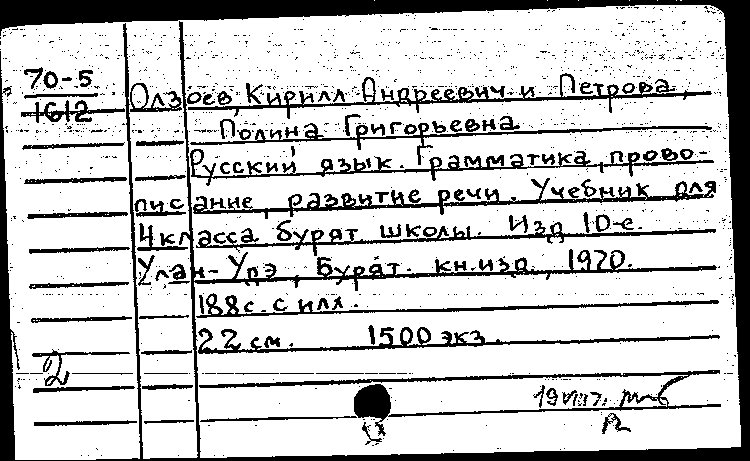 70-5
1612
Олзоев, Кирилл Андреевич и Петрова,
Полина Григорьевна
Русский язык. Грамматика, право-
писание, развитие речи. Учебник для
4 класса бурят. школы. Изд 10-е.
Улан-Удэ, Бурят. кн.изд., 1970.
188с. с илл.
22 см. 1500 экз.
2